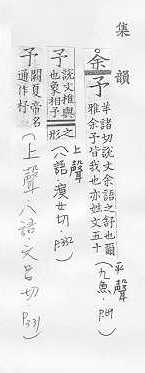 集韻
余予
羊諸切說文余語之舒也爾
雅余予皆我也亦姓文五十
(九魚·P.69)
平聲
予
說文推與
也象相予
之形
上聲
(八語·演女切·P.332)
予
闕夏帝名
通作杼
(上聲·八語·文呂切
P.331)